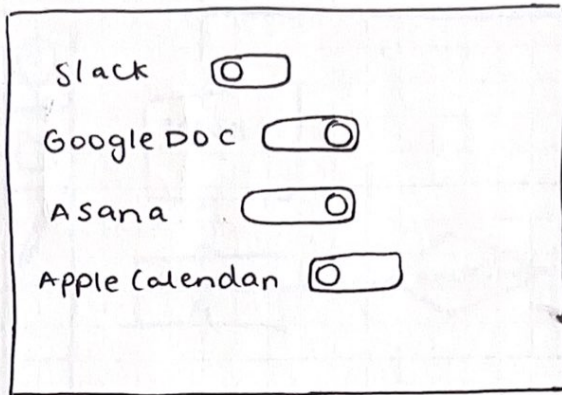 Slack
Google DOC
Asana
Apple Calendan